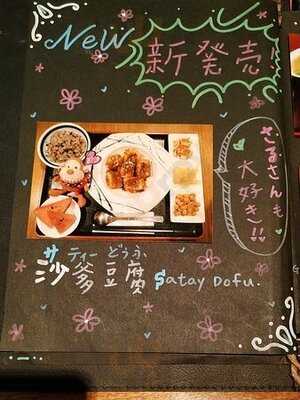 New
新発売
さるさんも
大好き!!
サティーどうふ
沙爹豆腐 Satay Dofu.